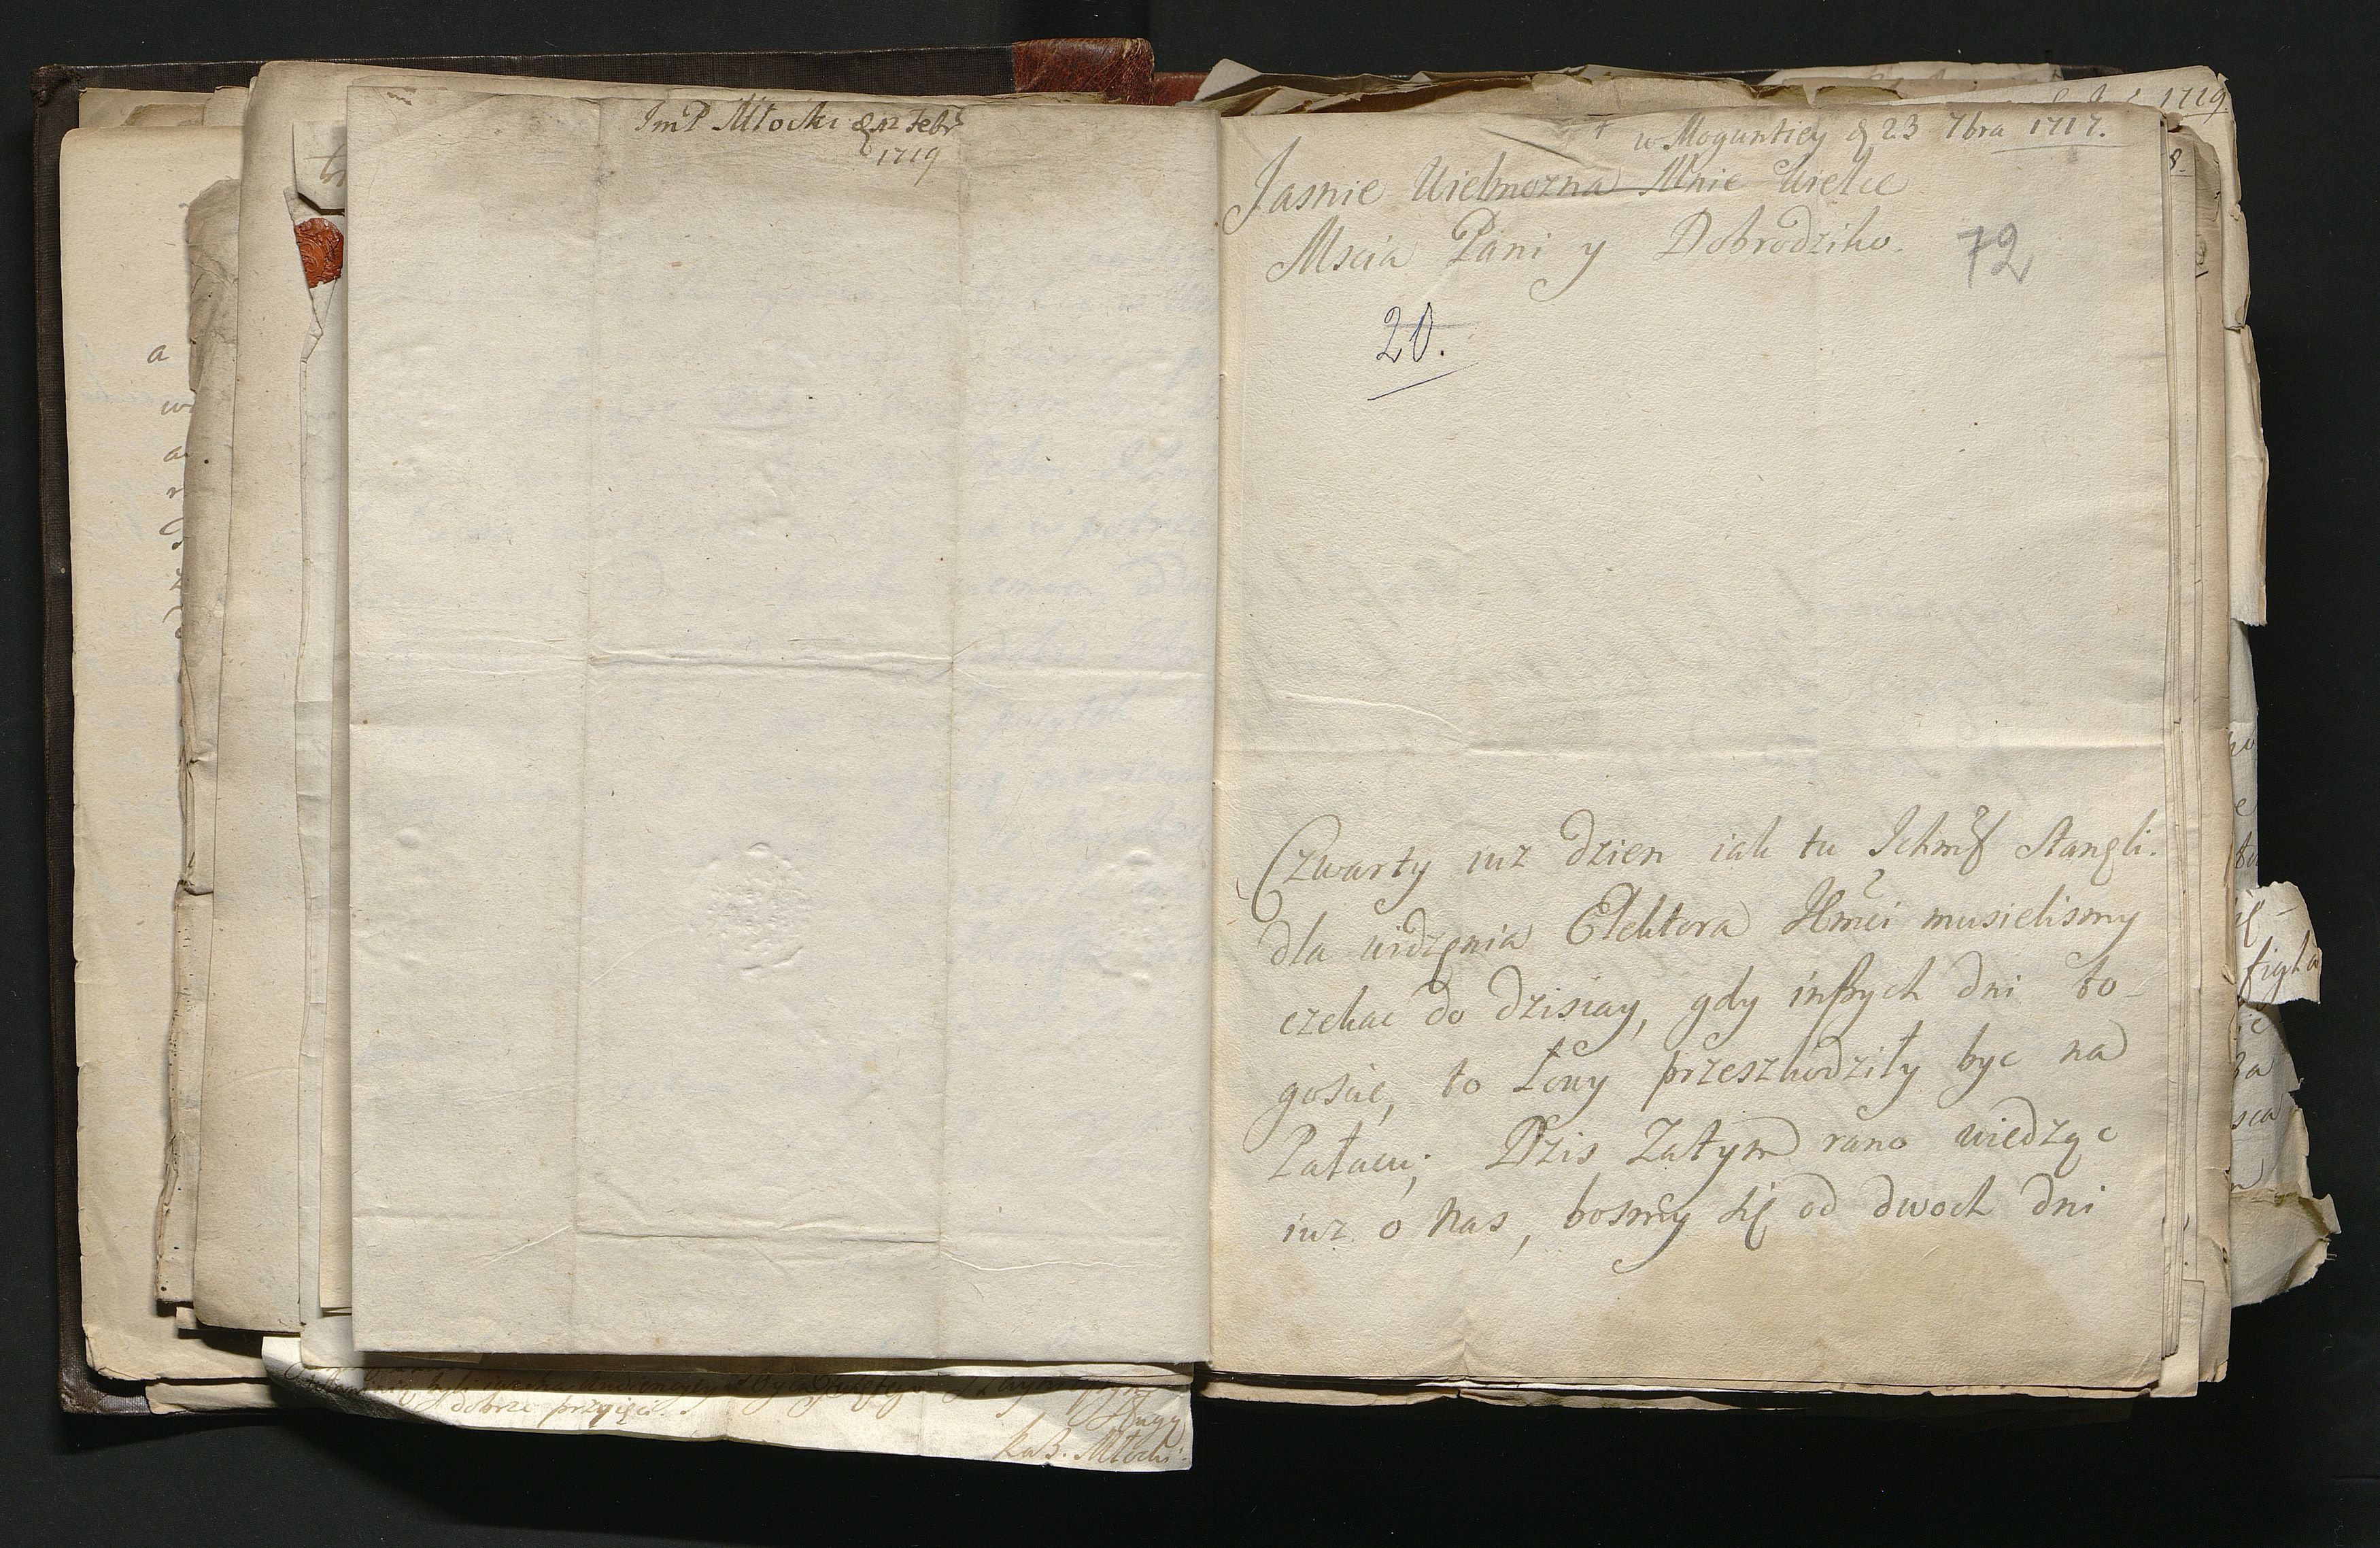 ImP Młocki d 12 Febr
1719
w Moguntiey d 23 7bra 1717.
Jasnie Wielmozna Mnie Wielce
Mscia Pani y Dobrodziko.
72
20.
Czwarty iuz dzien iak tu Ichmść stangli.
dla widzęnia Elektora Jmći musielismy
czekac do dzisiay, gdy inszych dni to-
goscie, to Łowy przeszkodziły byc na
Pałacu; Dzis Zatym rano wiedząc
iuz o nas, bosmy się od dwoch dni
dobrze przyięci.
Sługą
Kaz. Młocki
1719